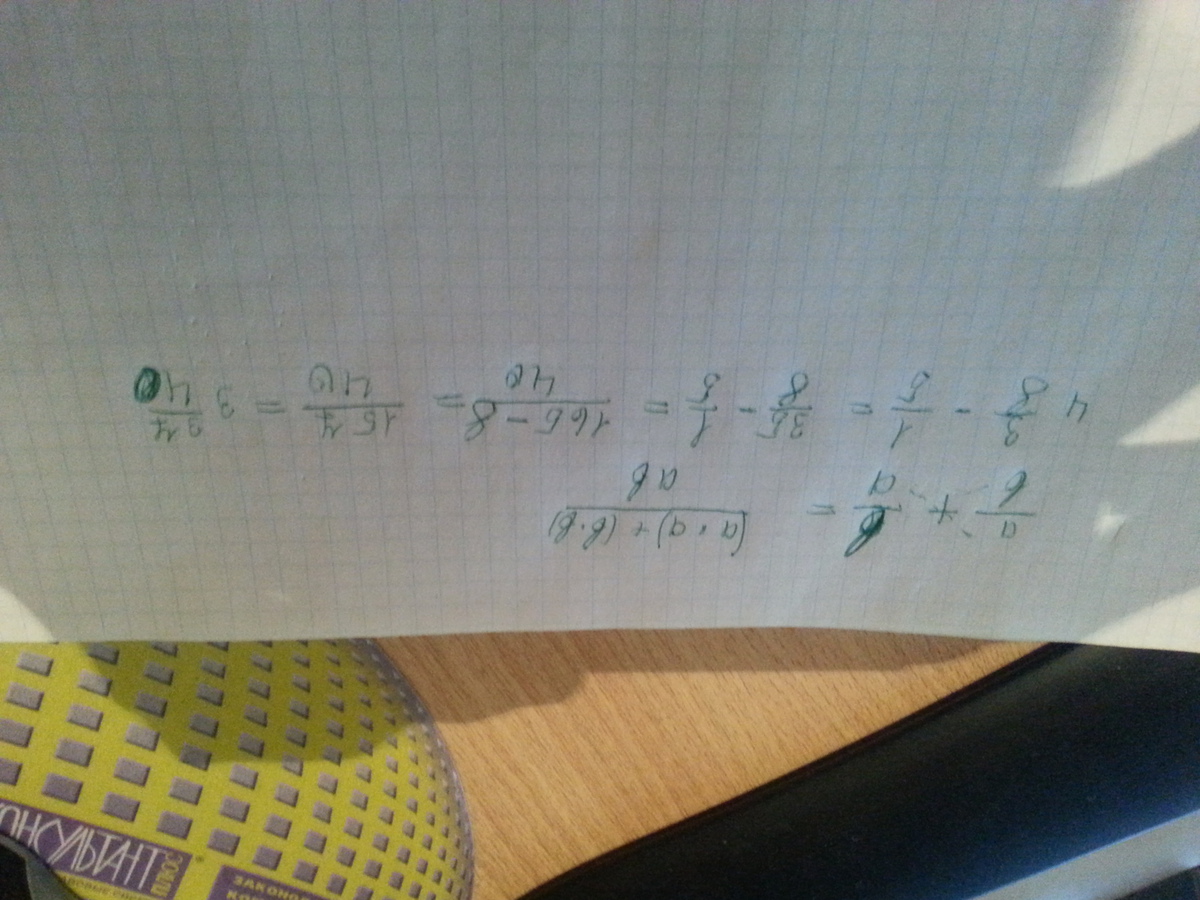 a/b + b/a = (a·a)+(b·b)/ab
4 3/8 - 1/5 = 35/8 - 1/5 = 165-8/40 = 157/40 = 3 37/40
ОНСУЛЬТАНТ
ЗАКОНО